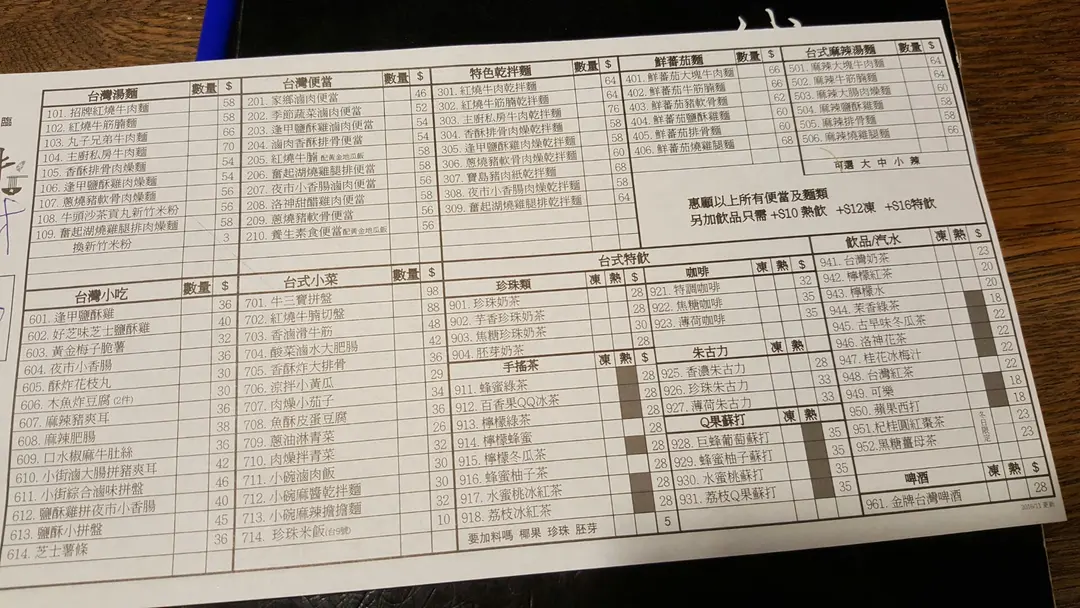 台灣湯麵 數量 $
101. 招牌紅燒牛肉麵 58
102. 紅燒牛筋腩麵 58
103. 丸子兄弟牛肉麵 66
104. 主廚私房牛肉麵 70
105. 香酥排骨肉燥麵 54
106. 逢甲鹽酥雞肉燥麵 54
107. 蔥燒豬軟骨肉燥麵 56
108. 牛頭沙茶貢丸新竹米粉
109. 奮起湖燒雞腿排肉燥麵 58
換新竹米粉 3
台灣便當 數量 $
201. 家鄉滷肉便當 46
202. 季節蔬菜滷肉便當 52
203. 逢甲鹽酥雞滷肉便當
204. 滷肉香酥排骨便當
205. 紅燒牛腩 配黃金地瓜飯
206. 奮起湖燒雞腿排便當
207. 夜市小香腸滷肉便當
208. 洛神甜醋雞肉便當
209. 蔥燒豬軟骨便當
210. 養生素食便當配黃金地瓜飯 56
特色乾拌麵 數量 $
301. 紅燒牛肉乾拌麵 64
302. 紅燒牛筋腩乾拌麵 64
303. 主廚私房牛肉乾拌麵 76
304. 香酥排骨肉燥乾拌麵 64
305. 逢甲鹽酥雞肉燥乾拌麵 58
306. 蔥燒豬軟骨肉燥乾拌麵 60
307. 寶島豬肉紙乾拌麵 68
308. 夜市小香腸肉燥乾拌麵 58
309. 奮起湖燒雞腿排乾拌麵 64
鮮蕃茄麵 數量 $
401. 鮮蕃茄大塊牛肉麵 66
402. 鮮蕃茄牛筋腩麵 66
403. 鮮蕃茄豬軟骨麵 62
404. 鮮蕃茄鹽酥雞麵 60
405. 鮮蕃茄排骨麵 60
406. 鮮蕃茄燒雞腿麵 68
台式麻辣湯麵 數量 $
501. 麻辣大塊牛肉麵 64
502. 麻辣牛筋腩麵 64
503. 麻辣大腸肉燥麵 60
504. 麻辣鹽酥雞麵 58
505. 麻辣排骨麵 58
506. 麻辣燒雞腿麵 66
可選 大 中 小 辣
惠顧以上所有便當及麵類
另加飲品只需 +$10 熱飲 +$12凍 +$16特飲
台灣小吃 數量 $
601. 逢甲鹽酥雞 36
602. 好芝味芝士鹽酥雞 40
603. 黃金梅子脆薯 32
604. 夜市小香腸 40
605. 酥炸花枝丸 30
606. 木魚炸豆腐(2件) 36
607. 麻辣豬爽耳 36
608. 麻辣肥腸 38
609. 口水椒麻牛肚絲 36
610. 小街滷大腸拼豬爽耳 42
611. 小街綜合滷味拼盤 46
612. 鹽酥雞拼夜市小香腸 40
613. 鹽酥小拼盤 45
614. 芝士薯條 36
台式小菜 數量 $
701. 牛三寶拼盤 98
702. 紅燒牛腩切盤 88
703. 香滷滑牛筋 48
704. 酸菜滷水大肥腸 42
705. 香酥炸大排骨 36
706. 涼拌小黃瓜 29
707. 肉燥小茄子 34
708. 魚酥皮蛋豆腐 36
709. 蔥油淋青菜 26
710. 肉燥拌青菜 32
711. 小碗滷肉飯 30
712. 小碗麻醬乾拌麵 30
713. 小碗麻辣擔擔麵 32
714. 珍珠米飯(台9號) 10
台式特飲
珍珠類 凍 熱 $
901. 珍珠奶茶 28
902. 芋香珍珠奶茶 28
903. 焦糖珍珠奶茶 30
904. 胚芽奶茶 28
手搖茶 凍 熱 $
911. 蜂蜜綠茶 28
912. 百香果QQ冰茶 28
913. 檸檬綠茶 28
914. 檸檬蜂蜜 28
915. 檸檬冬瓜茶 28
916. 蜂蜜柚子茶 28
917. 水蜜桃冰紅茶 28
918. 荔枝冰紅茶 28
要加料嗎 椰果 珍珠 胚芽 5
咖啡 凍 熱 $
921. 特調咖啡 32
922. 焦糖咖啡 35
923. 薄荷咖啡 35
朱古力 凍 熱 $
925. 香濃朱古力 28
926. 珍珠朱古力 33
927. 薄荷朱古力 33
Q果蘇打 凍 熱
928. 巨蜂葡萄蘇打 35
929. 蜂蜜柚子蘇打 35
930. 水蜜桃蘇打 35
931. 荔枝Q果蘇打 35
飲品/汽水 凍 熱 $
941. 台灣奶茶 23
942. 檸檬紅茶 20
943. 檸檬水 20
944. 茉香綠茶 18
945. 古早味冬瓜茶 22
946. 洛神花茶 22
947. 桂花冰梅汁 22
948. 台灣紅茶
949. 可樂
950. 蘋果西打
951. 杞桂圓紅棗茶 23
952. 黑糖薑母茶 23
冬日限定
啤酒 凍 熱 $
961. 金牌台灣啤酒 28